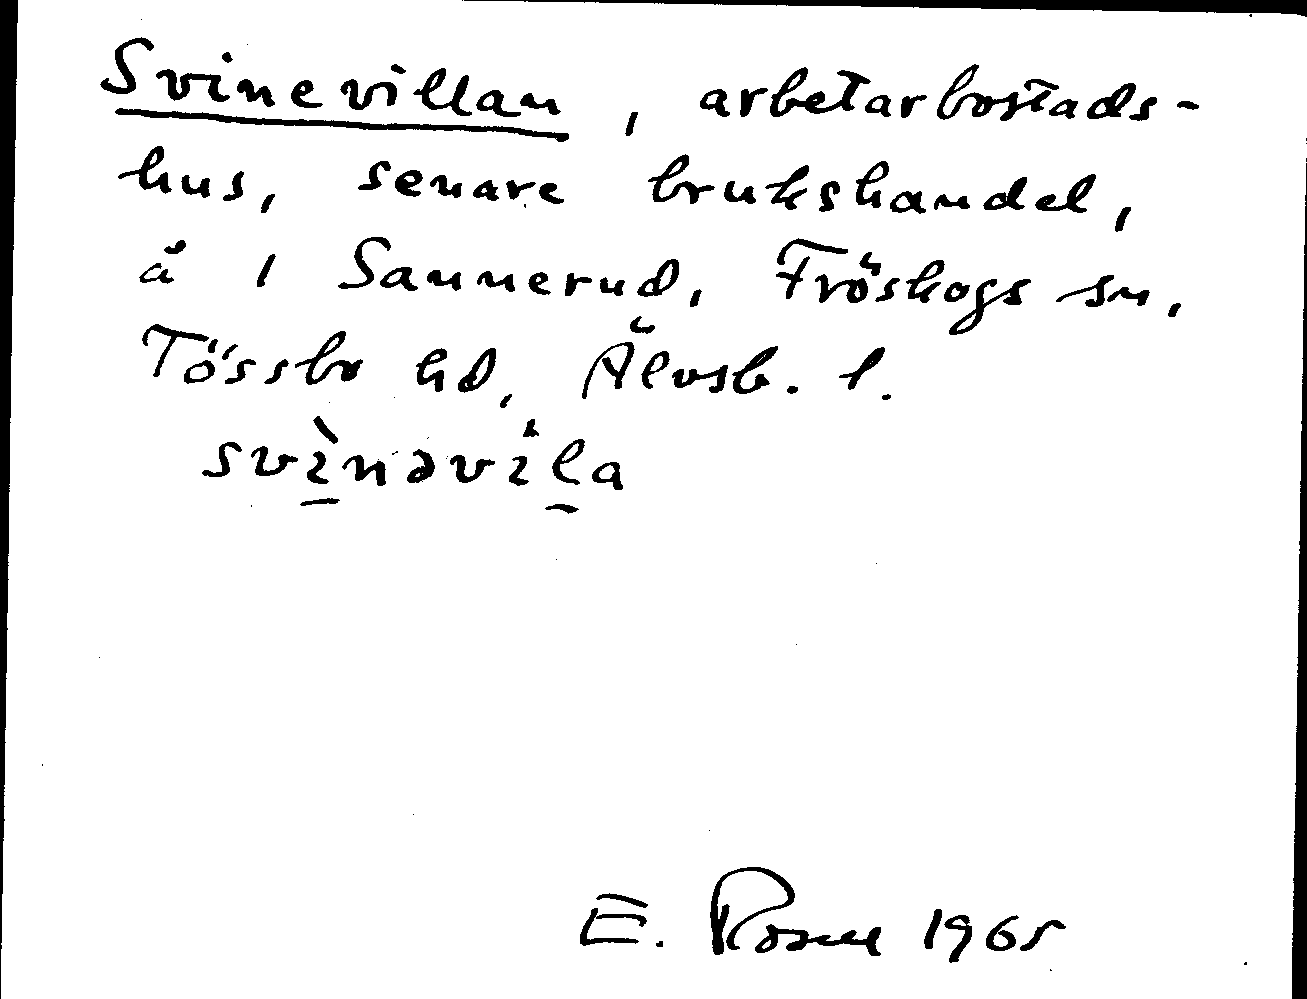 Svinevillan, arbetarbostads-
hus, senare brukshandel,
å 1 Sannerud, Fröskogs sn,
Tössbo hd, Älvsb. l.
svìnəvìla
E. Rosell 1965